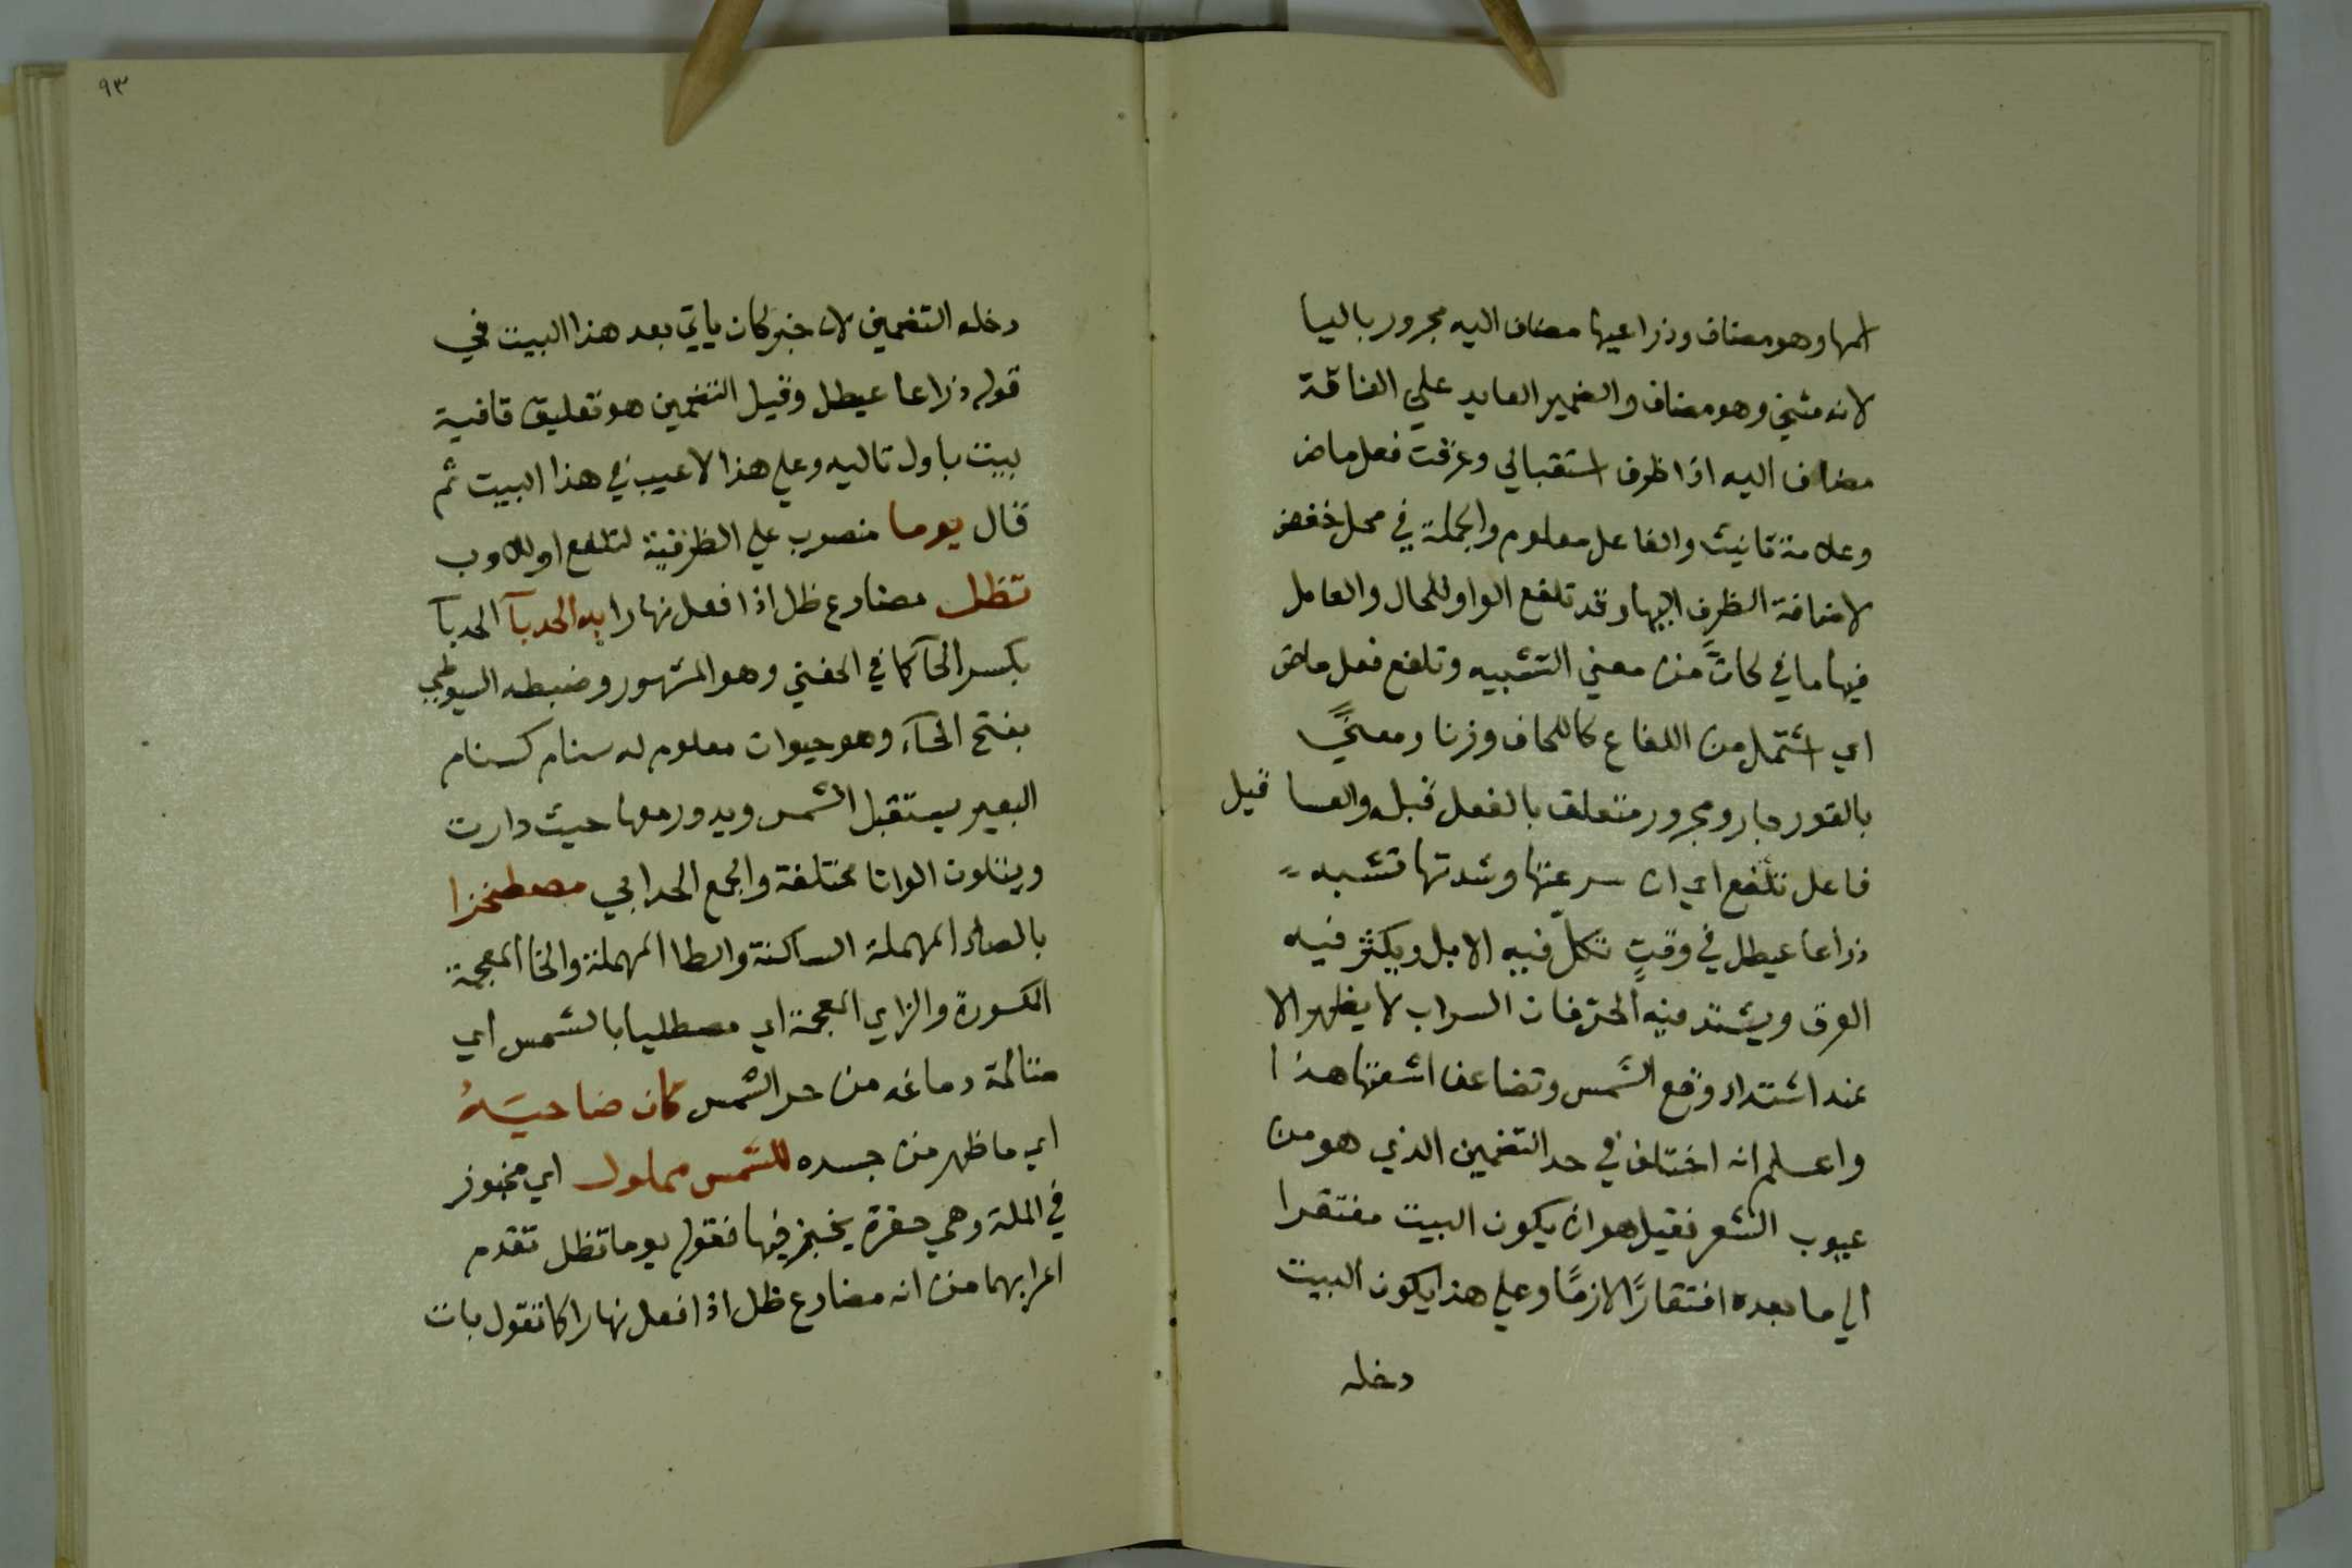 اسمها وهو مضاف وذراعيها مضاف اليه مجرور باليا
لانه مثني وهو مضاف والضمير العايد علي الناقة
مضاف اليه اذا ظرف استقبالي وعرقت فعل ماض
وعلامة تانيث والفاعل معلوم والجملة في محل خفض
لاضافة الظرف اليها وقد تلفع الواو للحال والعامل
فيها ما في كانّ من معني التشبيه وتلفع فعل ماض
اي اشتمل من اللفاع كاللحاف وزنا ومعنيً
بالقور جار ومجرور متعلق بالفعل قبله والعساقيل
فاعل تلفع اي ان سرعتها وشدتها تشبه
ذراعا عيطل في وقتٍ تكلّ فيه الابل ويكثر فيه
العرق ويشتد فيه الحر فان السراب لا يظهر الا
عند اشتداد وقع الشمس وتضاعف اشعتها هذا
واعلم انه اختلف في حد التضمين الذي هو من
عيوب الشعر فقيل هو ان يكون البيت مفتقرا
الي ما بعده افتقارًا لازمًا وعلي هذا يكون البيت
دخله
٩٣
دخله التضمين لان خبر كان ياتي بعد هذا البيت في
قوله ذراعا عيطل وقيل التضمين هو تعليق قافية
بيت باول تاليه وعلي هذا لا عيب في هذا البيت ثم
قال يوما منصوب علي الظرفية لتلفع او لاوب
تظل مضارع ظل اذا فعل نهارا به الحدبآ الحدبآ
بكسر الحآ كما في الحفني وهو المشهور وضبطه السيوطي
بفتح الحآء وهو حيوان معلوم له سنام كسنام
البعير يستقبل الشمس ويدور معها حيث دارت
ويتلون الوانا مختلفة والجمع الحدابي مصطخذا
بالصاد المهملة الساكنة والطا المهملة والخا المعجمة
المكسورة والزاي المعجمة اي مصطليا بالشمس اي
متالمة دماغه من حر الشمس كان ضاحيَهُ
اي ما ظهر من جسده للشمس مملول اي مخبوز
في الملة وهي حفرة يخبز فيها فقوله يوما تظل تقدم
اعرابهما من انه مضارع ظل اذا فعل نهارا كما تقول بات